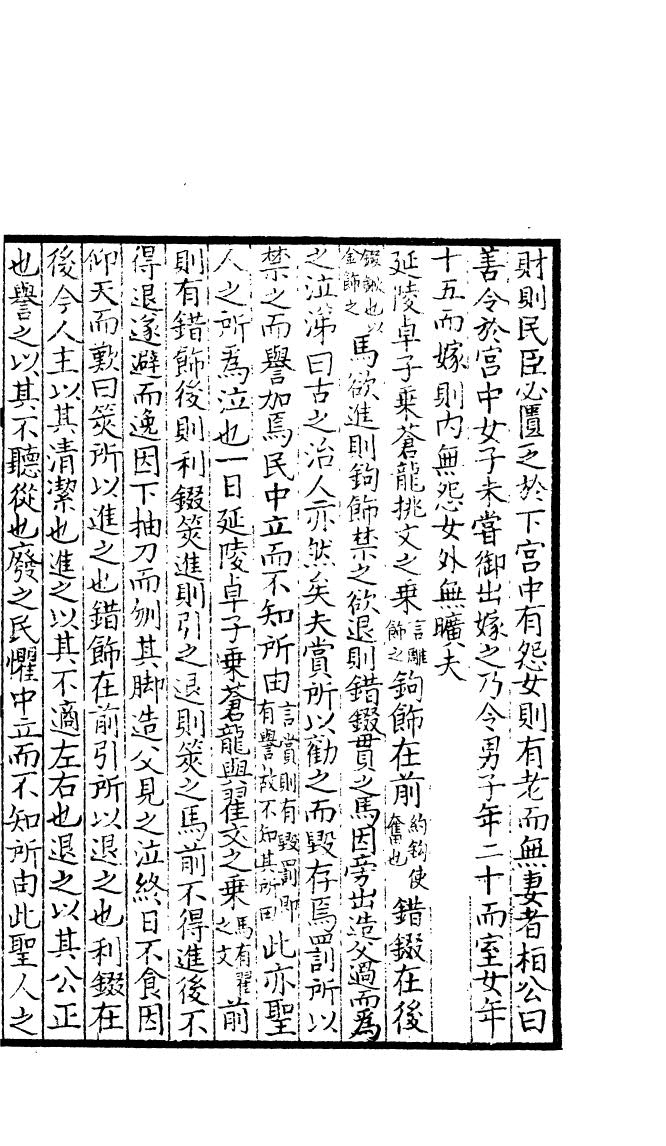 財則民臣必匱乏於下宫中有怨女則有老而無妻者桓公曰
善令於宫中女子未嘗御出嫁之乃令男子年二十而室女年
十五而嫁則内無怨女外無曠夫
延陵卓子乗蒼龍挑文之乗言雕飾之鉤飾在前約鉤使奮也錯錣在後
錣鍬也以金飾之馬欲進則鉤飾禁之欲退則錯錣貫之馬因旁出造父過而爲
之泣涕曰古之治人亦然矣夫賞所以勸之而毀存焉罰所以
禁之而譽加焉民中立而不知所由言賞則有毀罰即有譽故不知其所由此亦聖
人之所爲泣也一曰延陵卓子乗蒼龍與翟文之乗馬有翟之文前
則有錯飾後則利錣筴進則引之退則筴之馬前不得進後不
得退遂避而逸因下抽刀而刎其脚造父見之泣終日不食因
仰天而歎曰筴所以進之也錯飾在前引所以退之也利錣在
後今人主以其清潔也進之以其不適左右也退之以其公正
也譽之以其不聽從也廢之民懼中立而不知所由此聖人之